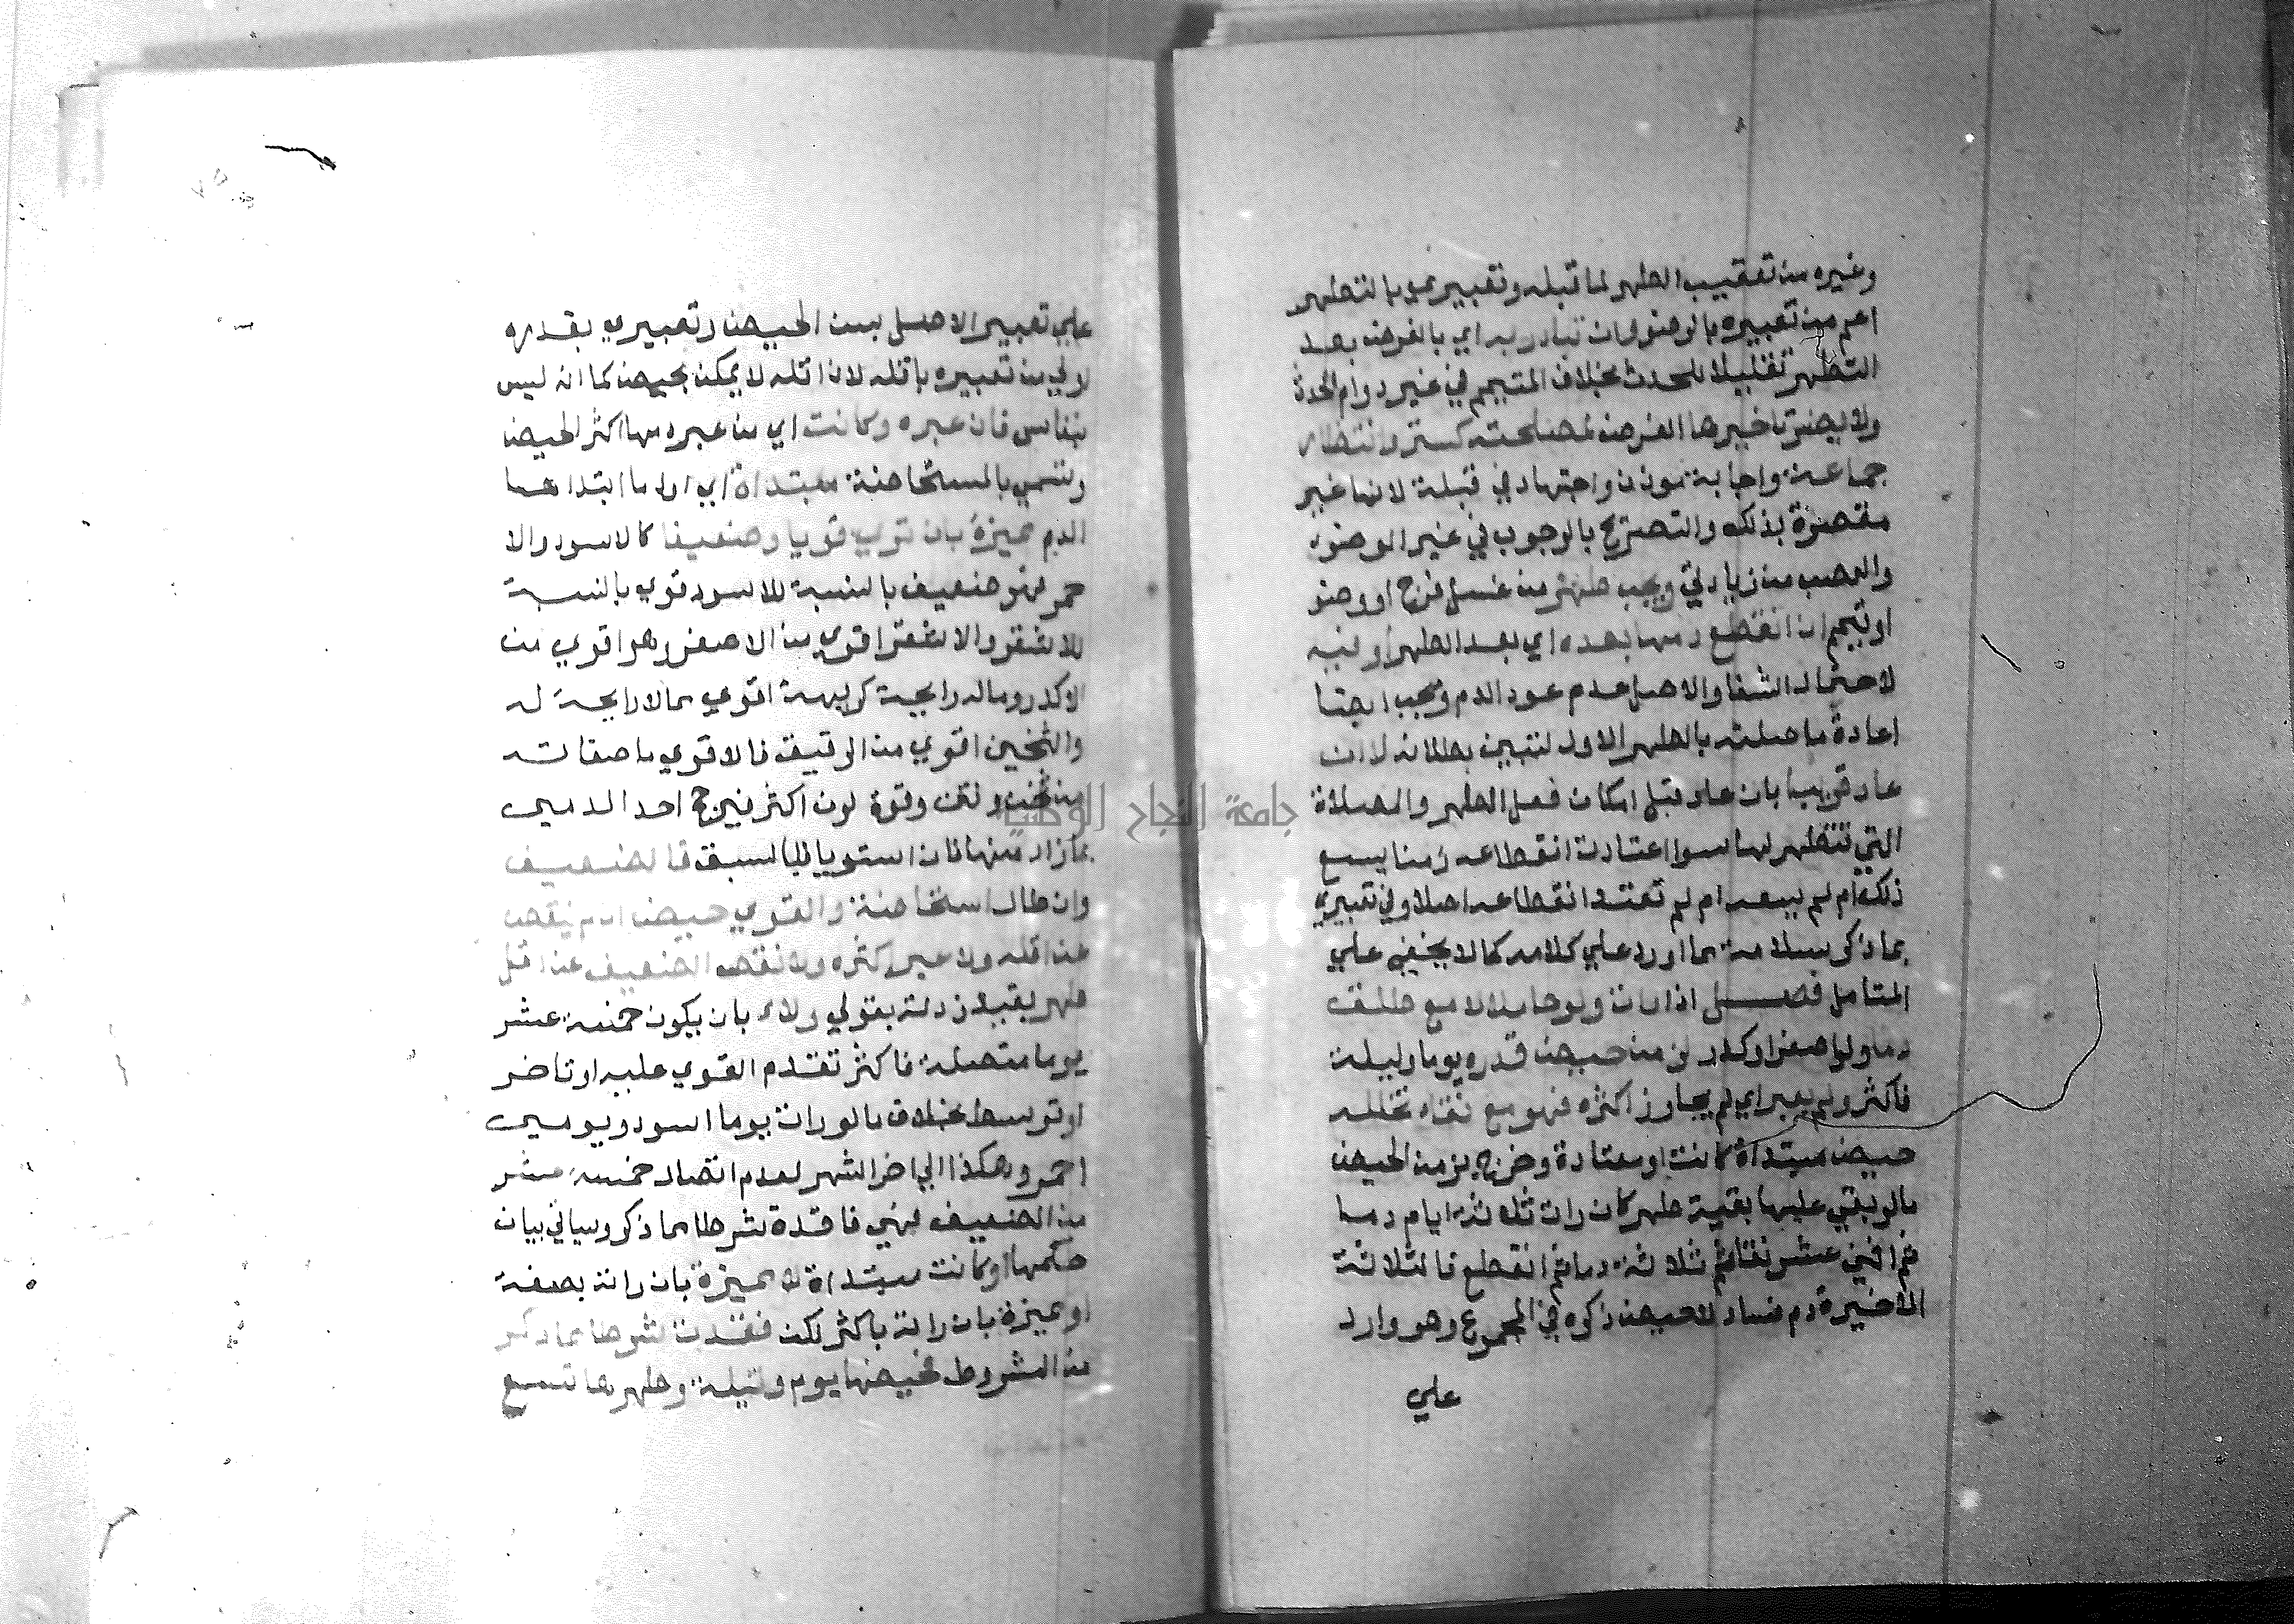 وغيره من تعقيب الطهر لما قبله وتعبيري بالتطهر
اعم من تعبيره بالوضوء وان تبادر به اي بالفرض بعد
التطهر تقليلا للحدث بخلاف المتيمم في غير دوام الحدث
ولا يضر تاخيرها الفرض لمصلحته كستر وانتظار
جماعة واجابة موذن واجتهاد في قبلة لانها غير
مقصرة بذلك والتصريح بالوجوب في غير الوضوء
والعصب من زيادتي ويجب طهر من غسل فرج ووضو
او تيمم ان انقطع دمها بعده اي بعد الطهر او فيه
لاحتمال الشفا والاصل عدم عود الدم ويجب ايضا
اعادة ما صلته بالطهر الاول لتبين بطلانه لا ان
عاد قريبا بان عاد قبل امكان فعل الطهر والصلاة
التي تتطهر لها سوا اعتادت انقطاعه زمنا يسع
ذلك ام لم يسعه ام لم تعتد انقطاعه اصلا وفي تعبيري
بما ذكر سلامة مما اورد علي كلامه كما لا يخفي علي
المتامل فصل اذا رات ولو حاملا لا مع طلق
دما ولو اصفر او كدر لزمن حيض قدره يوما وليلة
فاكثر ولم يعبر اي لم يجاوز اكثره فهو مع نقاء تخلله
حيض مبتداة كانت او معتادة وخرج بزمن الحيض
مالو بقي عليها بقية طهر كان رات ثلاثة ايام دما
ثم اثني عشر نقا ثم ثلاثة دما ثم انقطع فالثلاثة
الاخيرة دم فساد لا حيض ذكره في المجموع وهو وارد
علي
علي تعبير الاصل بسن الحيض وتعبيري بقدره
اولي من تعبيره باقله لان اقله لا يمكن بحيض كما انه ليس
بنفاس فان عبره وكانت اي من عبر دمها اكثر الحيض
وتسمي بالمستحاضة مبتداة اي اول ما ابتداها
الدم مميزة بان تري قويا وضعيفا كالاسود والا
حمر فهو ضعيف بالنسبة للاسود قوي بالنسبة
للاشقر والاشقر اقوي من الاصفر وهو اقوي من
الاكدر وماله رايحة كريهة اقوي مما لا رايحة له
والثخين اقوي من الرقيق فالاقوي ما صفاته
من ثخن ونتن وقوة لون اكثر فيرجح احد الدمين
بما زاد منها فان استويا فبالسبق فالضعيف
وان طال استحاضة والقوي حيض ان لم ينقص
عن اقله ولا عبر اكثره ولا نقص الضعيف عن اقل
طهر بقيد زدته بقولي ولاء بان يكون خمسة عشر
يوما متصلة فاكثر تقدم القوي عليه او تاخر
او توسط بخلاف مالو رات يوما اسود ويومين
احمر وهكذا الي اخر الشهر لعدم اتصال خمسة عشر
من الضعيف فهي فاقدة شرط مما ذكر وسياتي بيان
حكمها او كانت مبتداة لا مميزة بان راته بصفة
او مميزة بان راته باكثر لكن فقدت شرطا مما ذكر
من الشروط فحيضها يوم وليلة وطهرها تسع
جامعة النجاح الوطنية